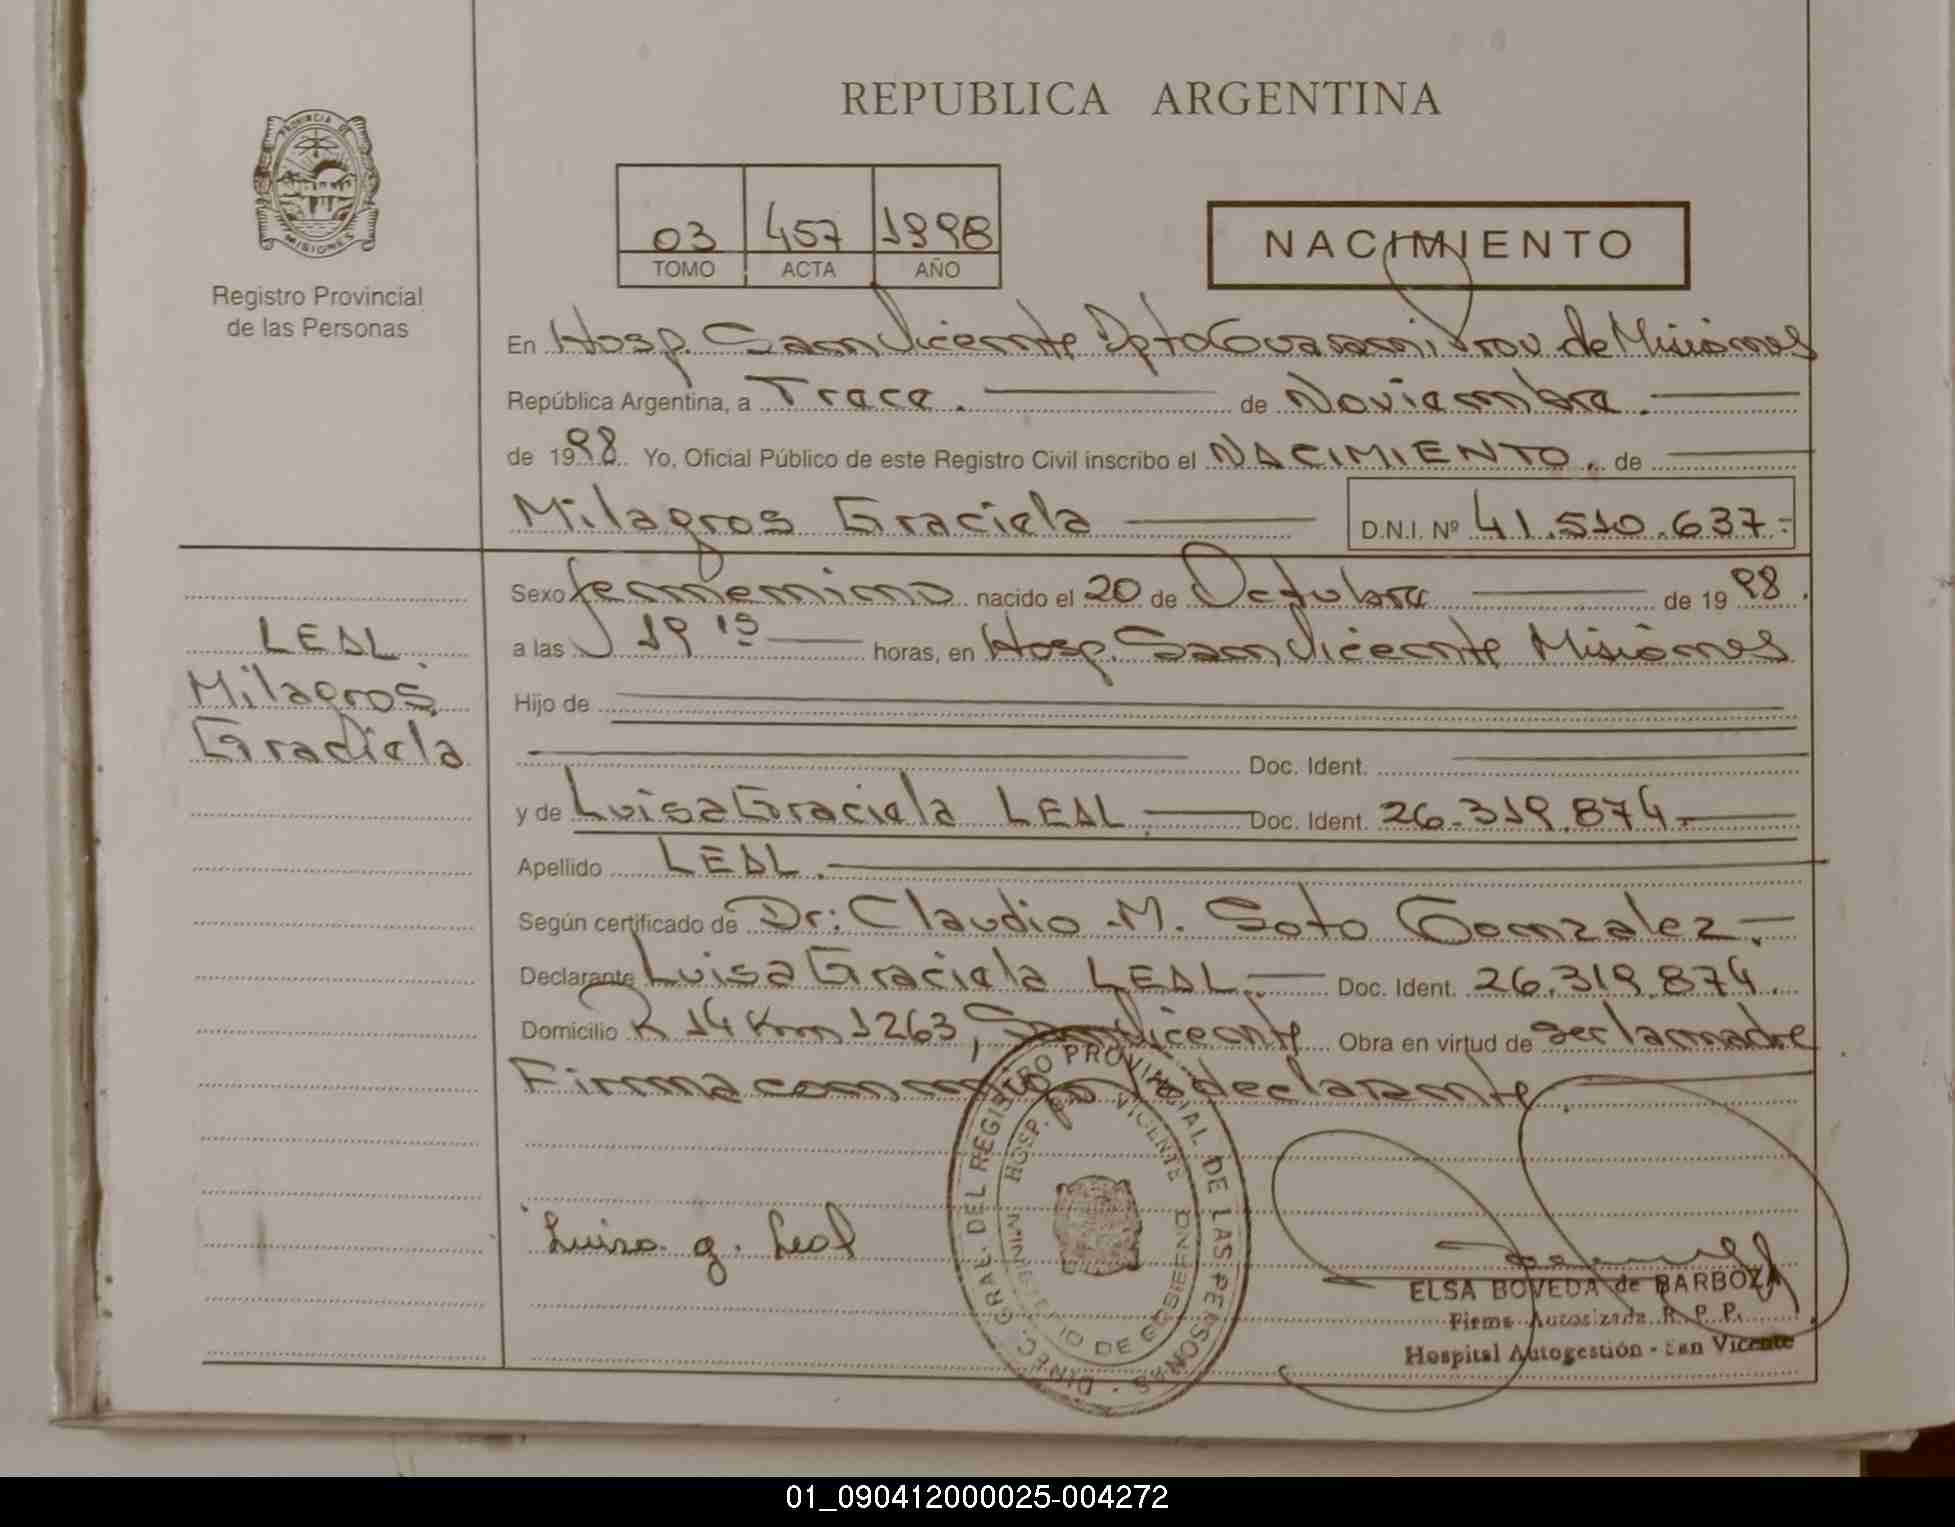 REPUBLICA ARGENTINA
PROVINCIA DE
MISIONES
Registro Provincial
de las Personas
03 457 1998
TOMO ACTA AÑO
NACIMIENTO
En Hosp. San Vicente Dpto Guarani Prov. de Misiones
República Argentina, a Trece. de Noviembre.
de 1998. Yo, Oficial Público de este Registro Civil inscribo el NACIMIENTO. de
Milagros Graciela D.N.I. Nº 41.510.637.-
Sexo femenino nacido el 20 de Octubre de 1998.
a las 19 15 horas, en Hosp. San Vicente Misiones
Hijo de
Doc. Ident.
y de Luisa Graciela LEAL Doc. Ident. 26.319.874.
Apellido LEAL.
Según certificado de Dr: Claudio M. Soto Gonzalez.-
Declarante Luisa Graciela LEAL. Doc. Ident. 26.319.874.
Domicilio R 14 Km 1263, San Vicente Obra en virtud de ser la madre
Firma conmigo la declarante.
LEAL.
Milagros
Graciela
Luisa g. Leal
DIREC. GRAL. DEL REGISTRO PROVINCIAL DE LAS PERSONAS
HOSP. SAN VICENTE
MINISTERIO DE GOBIERNO
ELSA BOVEDA de BARBOZA
Firma Autorizada R. P. P.
Hospital Autogestión - San Vicente
01_090412000025-004272